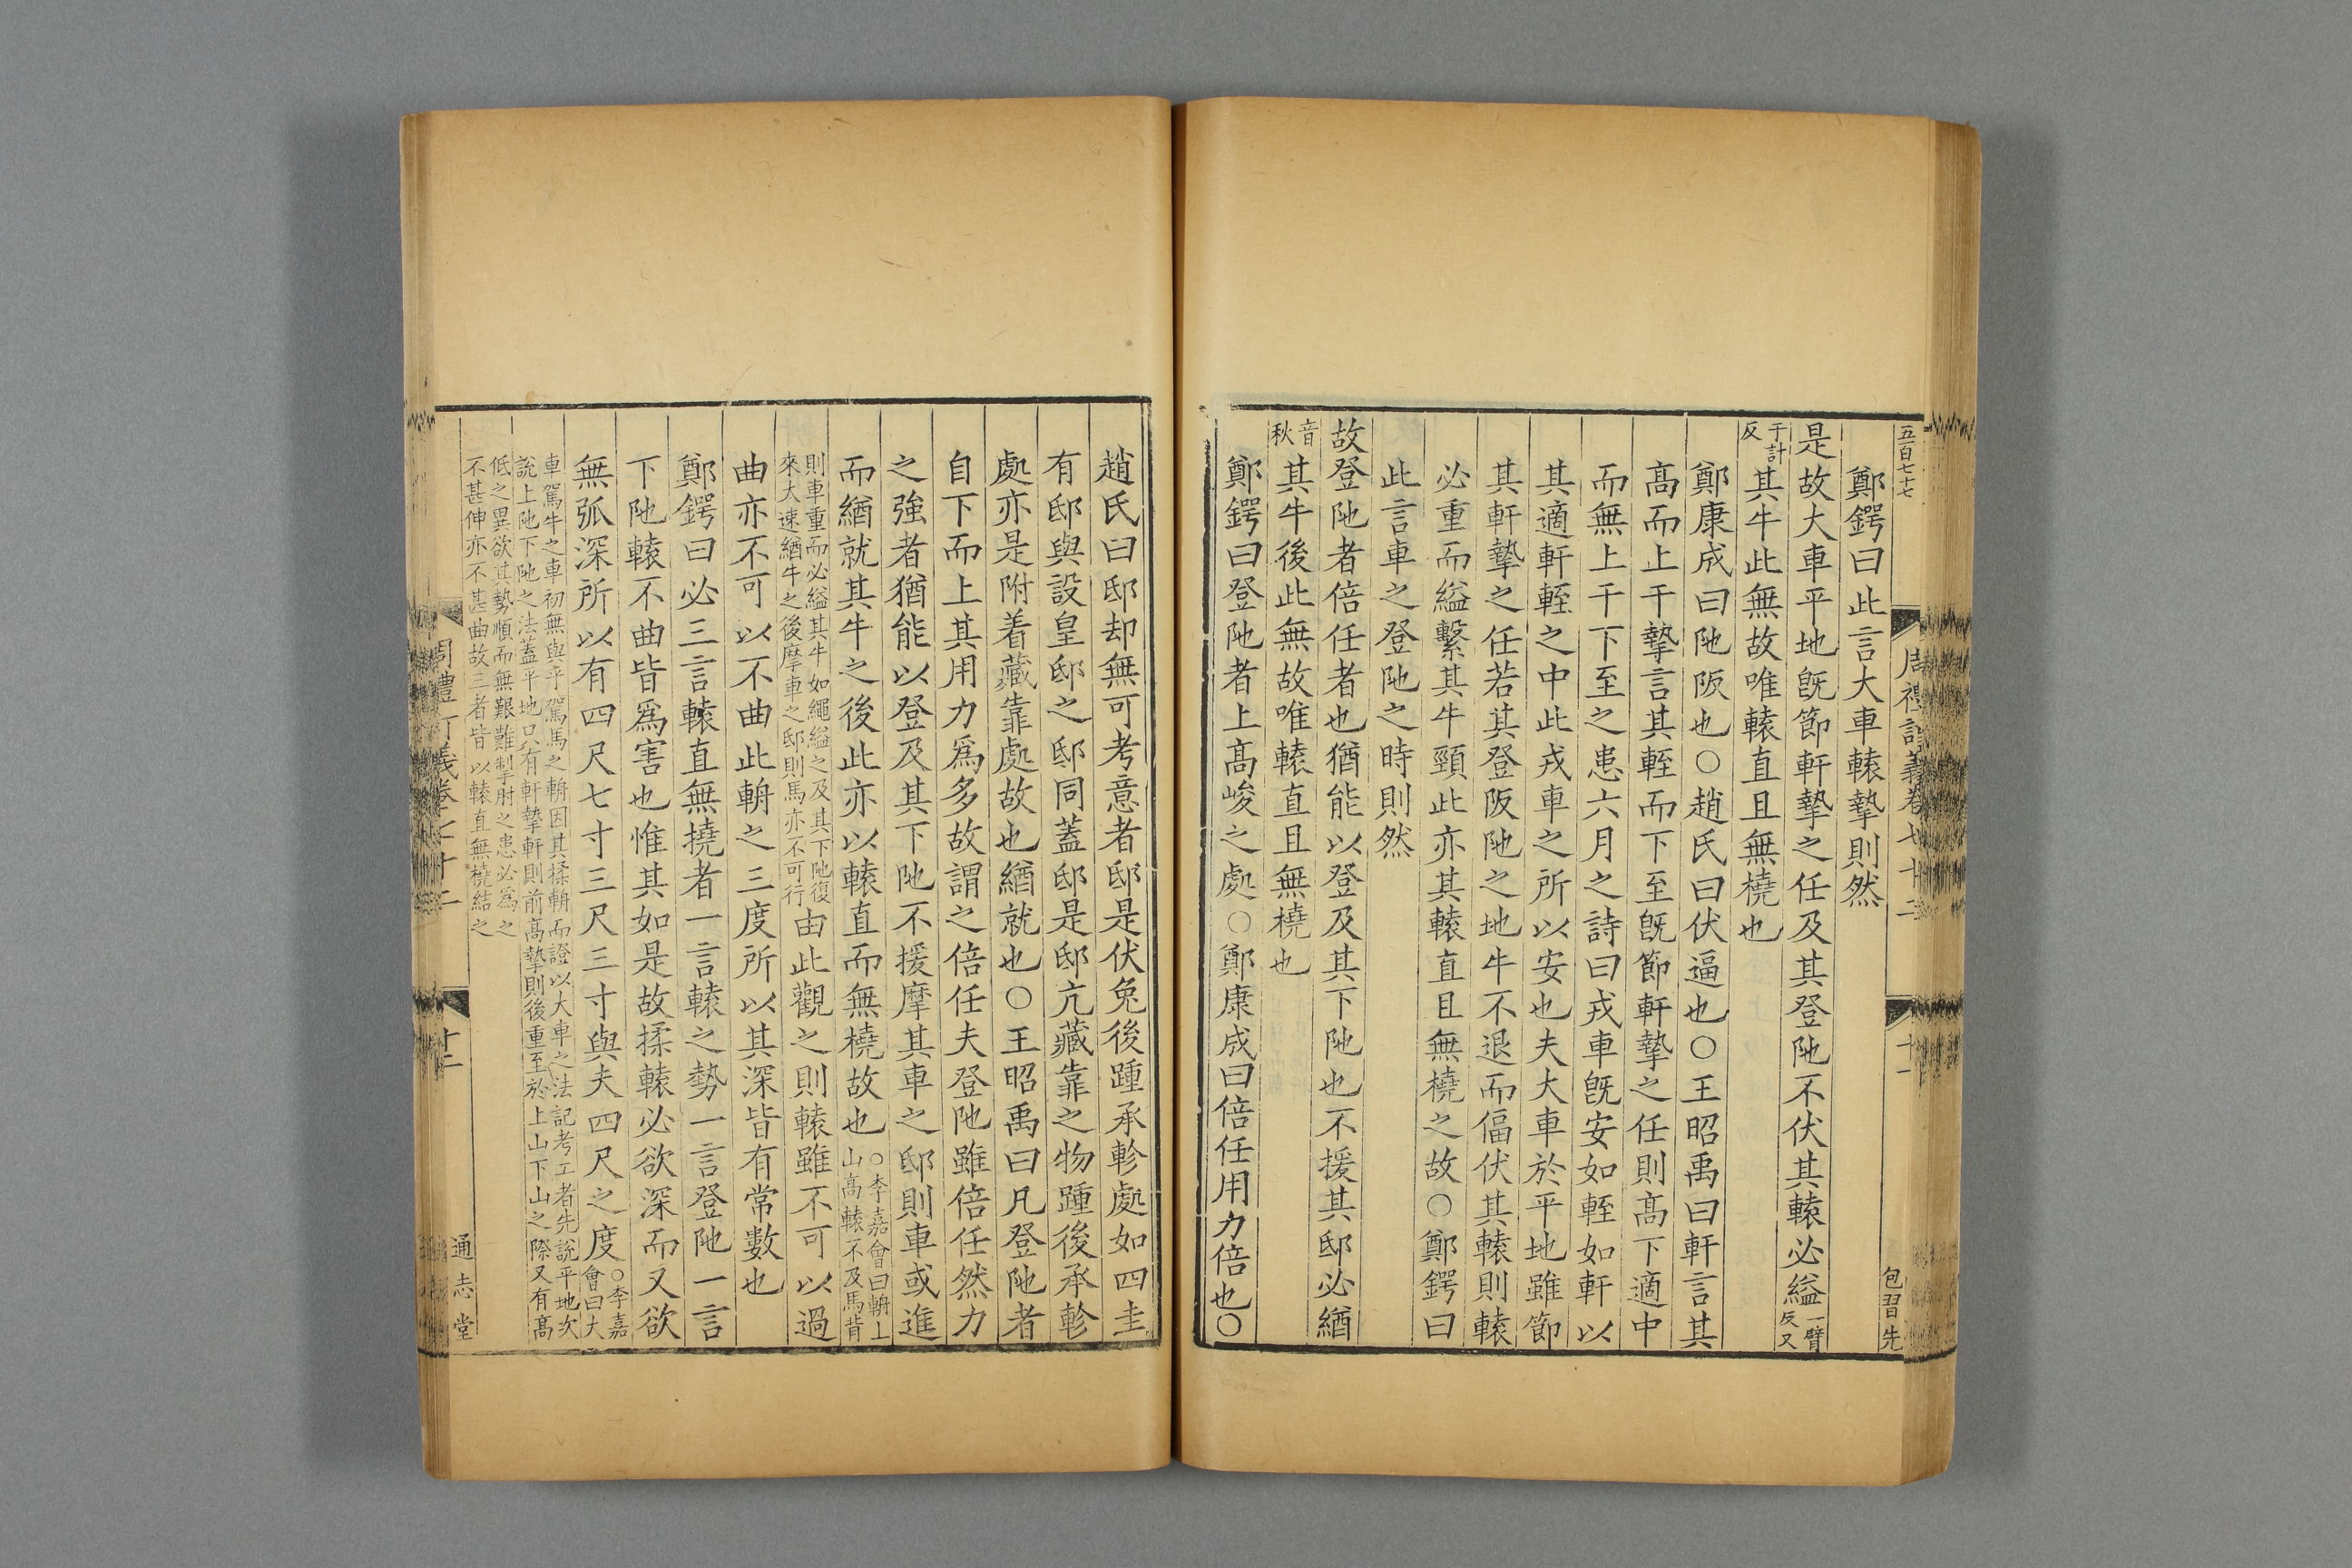 五百七十七
周禮訂義卷七十二
十一
包習先
鄭鍔曰此言大車轅摯則然
是故大車平地旣節軒摯之任及其登阤不伏其轅必縊一臂反又
于計反其牛此無故唯轅直且無橈也
鄭康成曰阤阪也○趙氏曰伏逼也○王昭禹曰軒言其
髙而上干摯言其輊而下至旣節軒摯之任則髙下適中
而無上干下至之患六月之詩曰戎車旣安如輊如軒以
其適軒輊之中此戎車之所以安也夫大車於平地雖節
其軒摯之任若其登阪阤之地牛不退而偪伏其轅則轅
必重而縊繫其牛頸此亦其轅直且無橈之故○鄭鍔曰
此言車之登阤之時則然
故登阤者倍任者也猶能以登及其下阤也不援其邸必緧
音秋其牛後此無故唯轅直且無橈也
鄭鍔曰登阤者上髙峻之處○鄭康成曰倍任用力倍也○
趙氏曰邸却無可考意者邸是伏兔後踵承軫處如四圭
有邸與設皇邸之邸同蓋邸是邸亢藏靠之物踵後承軫
處亦是附着藏靠處故也緧就也○王昭禹曰凡登阤者
自下而上其用力爲多故謂之倍任夫登阤雖倍任然力
之強者猶能以登及其下阤不援摩其車之邸則車或進
而緧就其牛之後此亦以轅直而無橈故也○李嘉會曰輈上山髙轅不及馬背
則車重而必縊其牛如繩縊之及其下阤復來大速緧牛之後摩車之邸則馬亦不可行由此觀之則轅雖不可以過
曲亦不可以不曲此輈之三度所以其深皆有常數也
鄭鍔曰必三言轅直無撓者一言轅之勢一言登阤一言
下阤轅不曲皆爲害也惟其如是故揉轅必欲深而又欲
無弧深所以有四尺七寸三尺三寸與夫四尺之度○李嘉會曰大
車駕牛之車初無與乎駕馬之輈因其揉輈而證以大車之法記考工者先說平地次
說上阤下阤之法蓋平地只有軒摯軒則前髙摯則後重至於上山下山之際又有髙
低之異欲其勢順而無艱難掣肘之患必爲之
不甚伸亦不甚曲故三者皆以轅直無橈結之
周禮訂義卷七十二
十二
通志堂